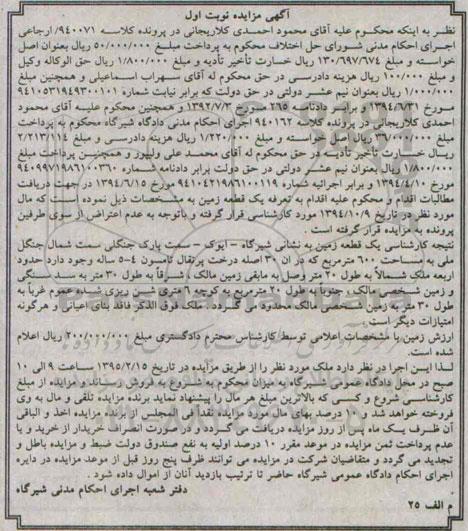 آگهی مزایده نوبت اول
نظر به اینکه محکوم علیه آقای محمود احمدی کلاریجانی در پرونده کلاسه ۹۴۰۰۷۱/ ارجاعی
اجرای احکام مدنی شورای حل اختلاف محکوم به پرداخت مبلغ ۵۰/۰۰۰/۰۰۰ ریال بعنوان اصل
خواسته و مبلغ ۱۳۰/۶۹۷/۶۷۴ ریال خسارت تأخیر تأدیه و مبلغ ۱/۸۰۰/۰۰۰ ریال حق الوکاله وکیل
و مبلغ ۱۰۰/۰۰۰ ریال هزینه دادرسی در حق محکوم له آقای سهراب اسماعیلی و همچنین مبلغ
۱/۰۰۰/۰۰۰ ریال بعنوان نیم عشر دولتی در حق دولت که برابر نیابت شماره ۹۴۱۰۵۳۱۹۴۹۳۰۰۱۰۱
مورخ ۱۳۹۴/۶/۳۱ و برابر دادنامه ۲۶۵ مورخ ۱۳۹۲/۷/۳ و همچنین محکوم علیه آقای محمود
احمدی کلاریجانی در پرونده کلاسه ۹۴۰۱۶۲ اجرای احکام مدنی دادگاه شیرگاه محکوم به پرداخت
مبلغ ۳۷/۰۰۰/۰۰۰ ریال اصل خواسته و مبلغ ۱/۲۲۰/۰۰۰ ریال هزینه دادرسی و مبلغ ۲/۲۱۳/۱۱۴
ریال خسارت تأخیر تأدیه در حق محکوم له آقای محمد علی ولیپور و همچنین پرداخت مبلغ
۱/۸۰۰/۰۰۰ ریال بعنوان نیم عشر دولتی در حق دولت برابر دادنامه شماره ۹۴۰۹۹۷۱۹۸۶۱۰۰۳۶۰
مورخ ۱۳۹۴/۴/۱۰ و برابر اجرائیه شماره ۹۴۱۰۴۲۱۹۸۶۱۰۰۱۱۹ مورخ ۱۳۹۴/۶/۱۵ در جهت دریافت
مطالبات اقدام و محکوم علیه اقدام به تعرفه یک قطعه زمین به مشخصات ذیل نموده است که مال
مورد نظر در تاریخ ۱۳۹۴/۱۰/۹ مورد کارشناسی قرار گرفته و باتوجه به عدم اعتراض از سوی طرفین
پرونده به مزایده قرار گرفته است.
نتیجه کارشناسی یک قطعه زمین به نشانی شیرگاه - ایوک - سمت پارک جنگلی سمت شمال جنگل
ملی به مساحت ۶۰۰ مترمربع که در آن ۳۰ اصله درخت پرتقال تامسون ۴-۵ ساله وجود دارد حدود
اربعه ملک شمالاً به طول ۲۰ متر وصل به مابقی زمین مالک، شرقاً به طول ۳۰ متر به سد سنگی
و زمین شخصی مالک، جنوباً به طول ۲۰ مترمربع به کوچه ۶ متری شن ریزی شده عموم غرباً به
طول ۳۰ متر به زمین شخصی مالک محدود می گردد. ملک فوق الذکر فاقد بنای اعیانی و هرگونه
امتیازات دیگر است.
ارزش زمین با مشخصات اعلامی توسط کارشناس محترم دادگستری مبلغ ۲۰۰/۰۰۰/۰۰۰ ریال اعلام
شده است.
لذا این اجرا در نظر دارد ملک مورد نظر را از طریق مزایده در تاریخ ۱۳۹۵/۲/۱۵ ساعت ۹ الی ۱۰
صبح در محل دادگاه عمومی شیرگاه به میزان محکوم به به فروش رساند و مزایده از مبلغ
کارشناسی شروع و کسی که بالاترین مبلغ هر مال را پیشنهاد نماید برنده مزایده تلقی و مال به وی
فروخته خواهد شد و ۱۰ درصد بهای مال مورد مزایده نقداً فی المجلس از برنده مزایده اخذ و الباقی
آن ظرف یک ماه پس از روز مزایده دریافت می گردد و در صورت انصراف خریدار از خرید و یا
عدم پرداخت ثمن مزایده در موعد مقرر ۱۰ درصد اولیه به نفع صندوق دولت ضبط و مزایده باطل و
تجدید می گردد و متقاضیان شرکت در مزایده می توانند ظرف پنج روز قبل از موعد مزایده در دایره
اجرای احکام دادگاه عمومی شیرگاه حاضر تا ترتیب بازدید آنان از اموال داده شود.
دفتر شعبه اجرای احکام مدنی شیرگاه
م الف ۲۵